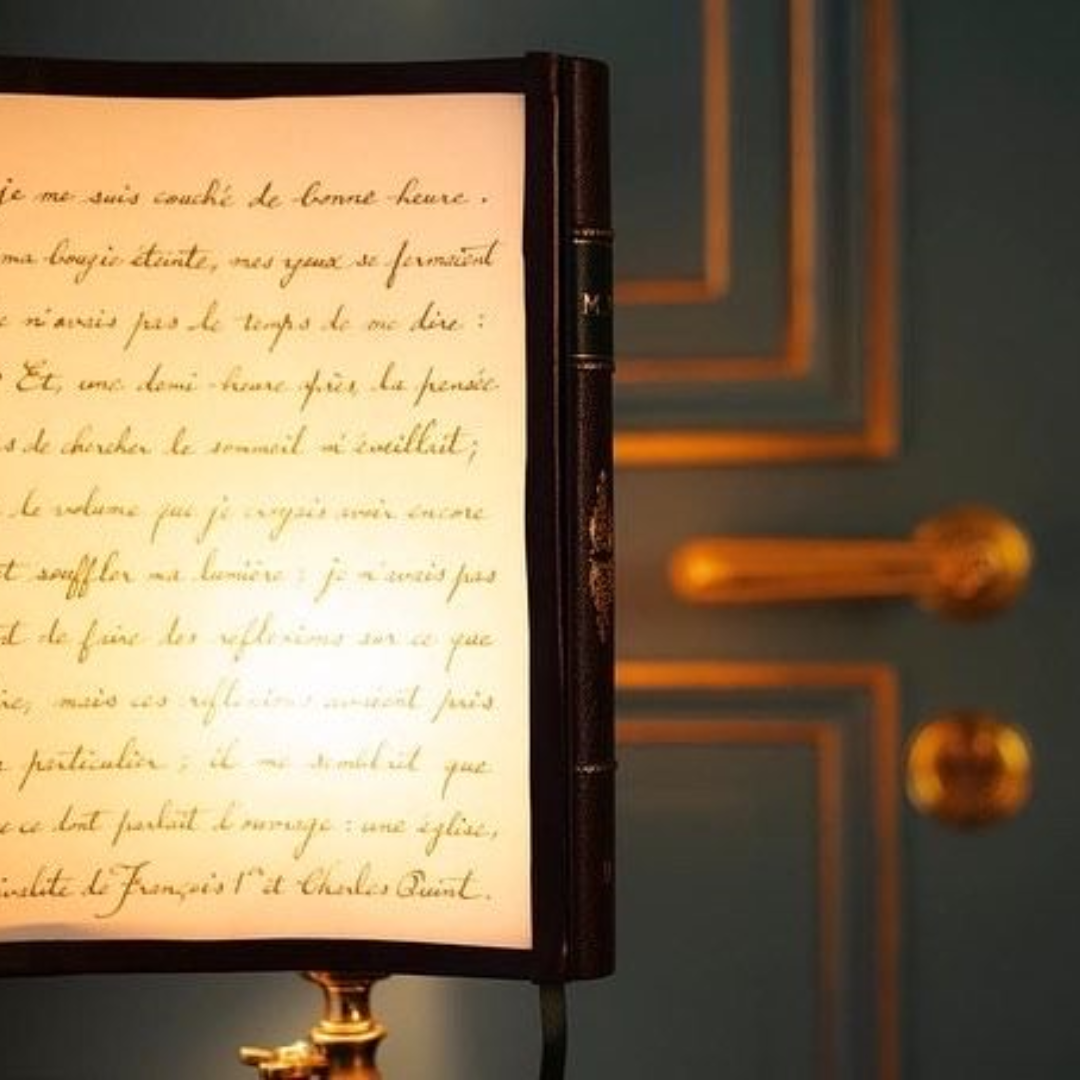 je me suis couché de bonne heure.
ma bougie éteinte, mes yeux se fermaient
n'avais pas le temps de me dire :
Et, une demi-heure après, la pensée
de chercher le sommeil m'éveillait ;
le volume que je croyais avoir encore
souffler ma lumière : je n'avais pas
de faire des reflexions sur ce que
mais ces reflexions avaient pris
particulier ; il me semblait que
ce dont parlait l'ouvrage : une église,
de François 1er et Charles Quint.
M